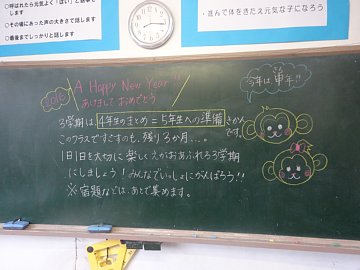 ○呼ばれたら元気よく「はい」と返事をします
○その場にあった声の大きさで話します
○最後までしっかりと話します
・進んで体をきたえ元気な子になろう
2016
A Happy New Year!!
あけまして おめでとう
今年は、申年!!
3学期は「4年生のまとめ=5年生への準備」きかん
です。
このクラスですごすのも、残り3か月…。
1日1日を大切に 楽しくえがおあふれる3学期
にしましょう!みんなでいっしょにがんばろう!!
※宿題などは、あとで集めます。